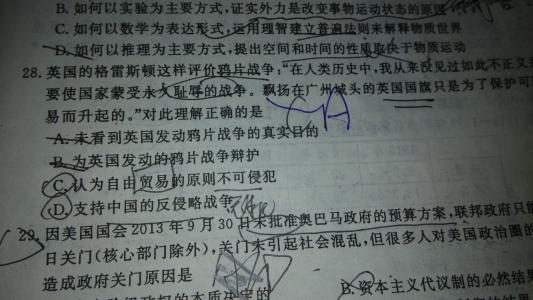 B. 如何以实验为主要方式,证实外力是改变事物运动状态的原因
C. 如何以数学为表达形式,运用理智建立普遍法则来解释物质世界
D. 如何以推理为主要方式,提出空间和时间的性质取决于物质运动
28. 英国的格雷斯顿这样评价鸦片战争:“在人类历史中,我从来没见过如此不正义
要使国家蒙受永久耻辱的战争。飘扬在广州城头的英国国旗只是为了保护可
易而升起的。”对此理解正确的是
A. 未看到英国发动鸦片战争的真实目的
B. 为英国发动的鸦片战争辩护
C. 认为自由贸易的原则不可侵犯
D. 支持中国的反侵略战争
29. 因美国国会 2013 年 9 月 30 日未批准奥巴马政府的预算方案,联邦政府只能
日关门(核心部门除外),关门未引起社会混乱,但很多人对美国政治圈的
造成政府关门原因是
的本质决定的
B. 资本主义代议制的必然结果